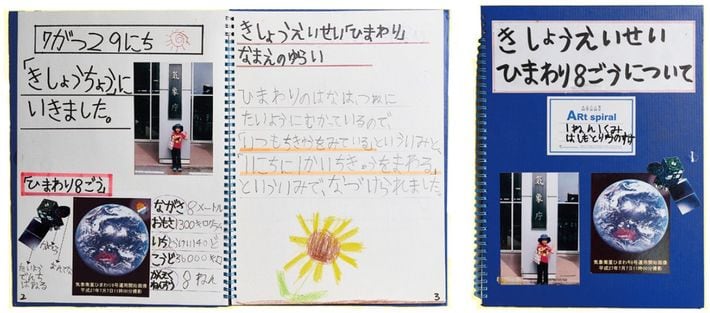 7がつ29にち
「きしょうちょう」に
いきました。
気象庁
「ひまわり8ごう」
ながさ8メートル
おもさ1300キログラム
いち とうけい140ど
こうど36000キロ
8ねん
たいよう
でんち
ぱねる
気象衛星ひまわり8号運用開始画像
平成27年7月7日11時00分撮影
2
きしょうえいせい「ひまわり」
なまえのゆらい
ひまわりのはなは、つねに
たいようにむかっているので、
「いつもちきゅうをみている」といういみと、
「1にちに1かいちきゅうをまわる」
といういみで、なづけられました。
3
きしょうえいせい
ひまわり8ごうについて
ARt spiral
1ねん1くみ
気象庁
気象衛星ひまわり8号運用開始画像
平成27年7月7日11時00分撮影